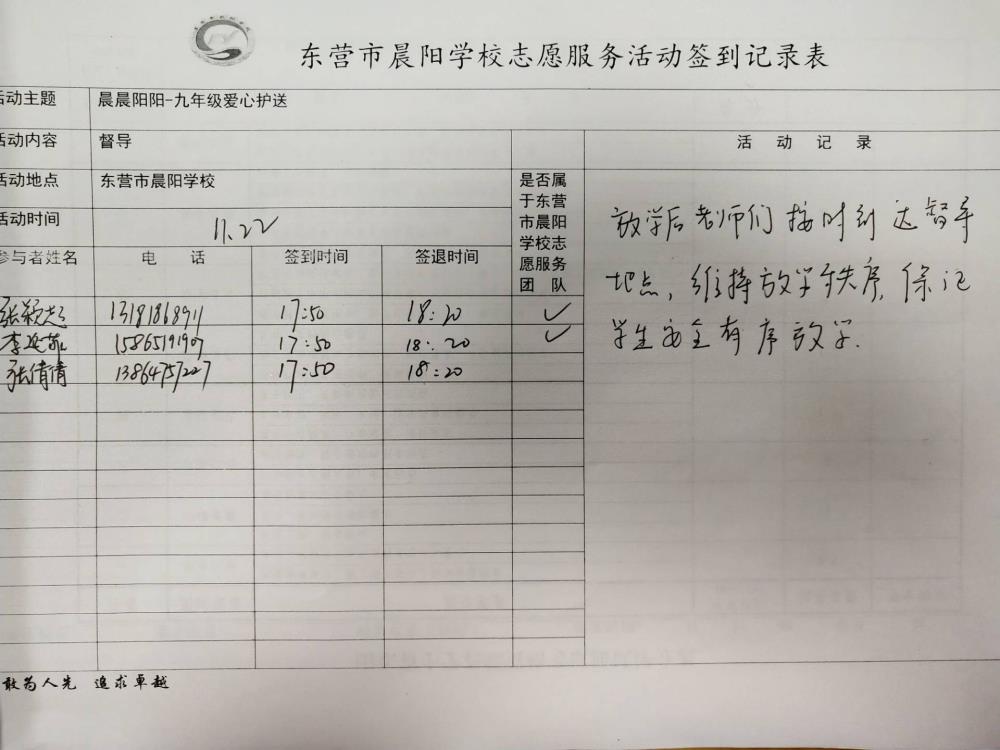 东营市晨阳学校志愿服务活动签到记录表
活动主题 晨晨阳阳-九年级爱心护送
活动内容 督导
活动地点 东营市晨阳学校
活动时间 11.22
是否属于东营市晨阳学校志愿服务团队
活动记录
参与者姓名 电话 签到时间 签退时间
张颖 13181868911 17:50 18:20 ✓
李 15865191907 17:50 18:20 ✓
张倩倩 13864757227 17:50 18:20
放学后老师们按时到达督导
地点,维持放学秩序,保证
学生安全有序放学.
敢为人先 追求卓越